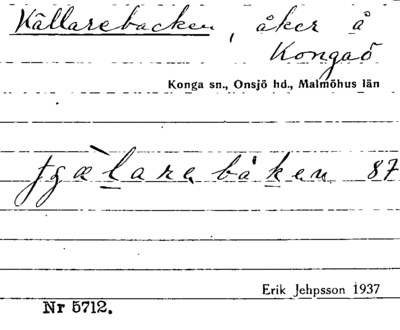 Källarebacken, åker å
Kongaö
Konga sn., Onsjö hd., Malmöhus län
87
Erik Jehpsson 1937
Nr 5712.